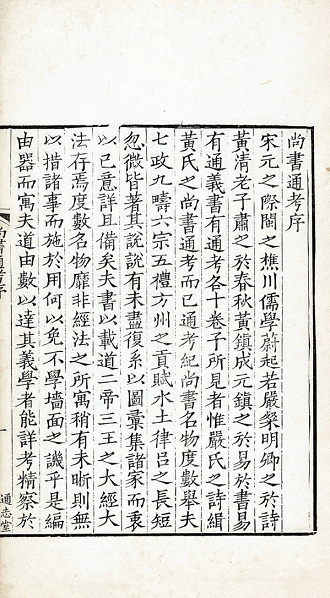 尚書通考序
宋元之際閩之樵川儒學蔚起若嚴粲明卿之於詩
黃清老子肅之於春秋黃鎮成元鎮之於易於書易
有通義書有通考各十卷子所見者惟嚴氏之詩緝
黃氏之尚書通考而已通考紀尚書名物度數舉夫
七政九疇六宗五禮方州之貢賦水土律吕之長短
忽微皆著其說說有未盡復系以圖彙集諸家而衷
以已意詳且備矣夫書以載道二帝三王之大經大
法存焉度數名物靡非經法之所寓稍有未晣則無
以措諸事而施於用何以免不學墻面之譏乎是編
由器而寓夫道由數以達其義學者能詳考精察於
尚書通考序
一
通志堂